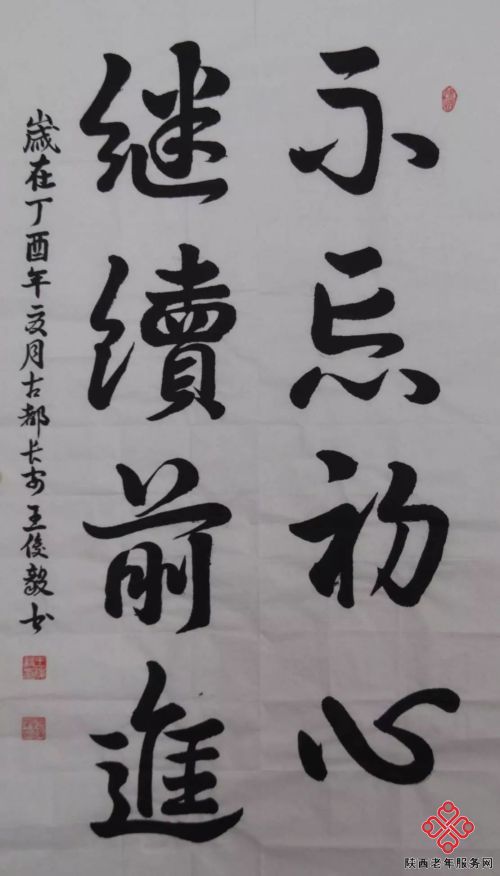 不忘初心
继續前進
歲在丁酉年交月古都长安王俊毅书
陕西老年服务网